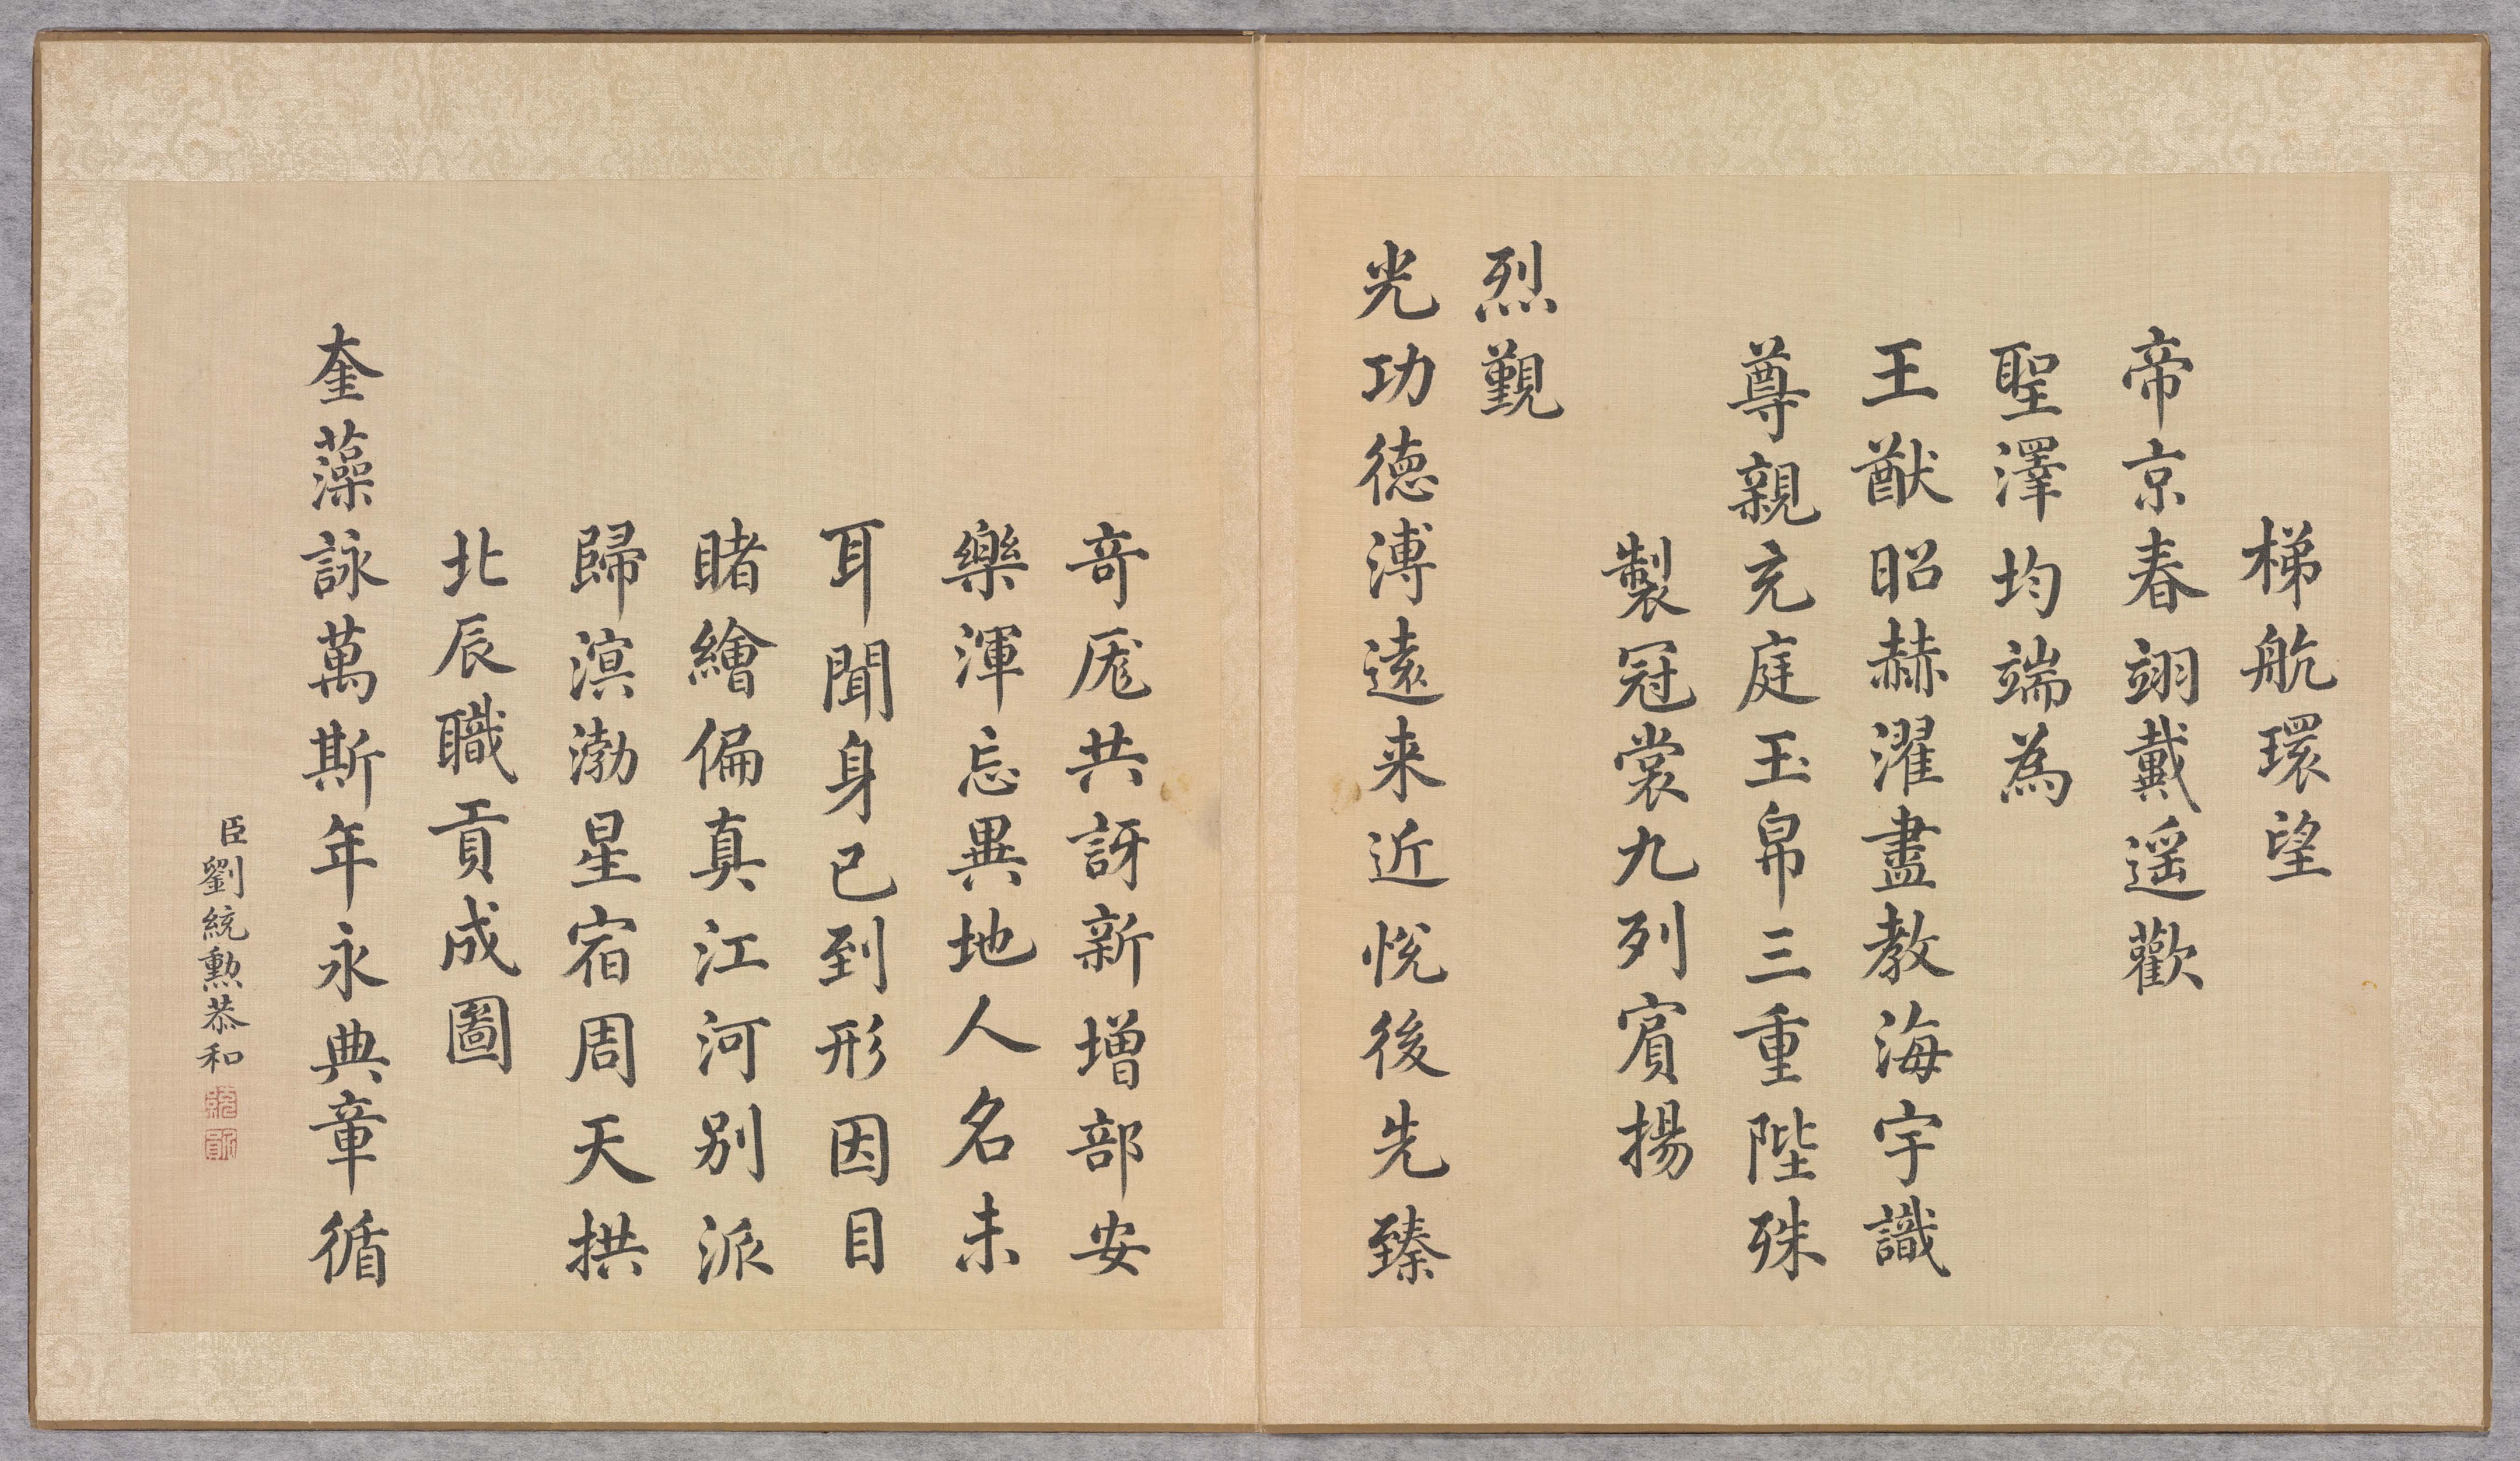 梯航環望
帝京春翊戴遥歡
聖澤均端為
王猷昭赫濯盡教海宇識
尊親充庭玉帛三重陛殊
製冠裳九列賓揚
烈覲
光功德溥遠来近悅後先臻
奇厖共訝新增部安
樂渾忘異地人名未
耳聞身已到形因目
睹繪偏真江河別派
歸溟渤星宿周天拱
北辰職貢成圖
奎藻詠萬斯年永典章循
臣劉統勲恭和